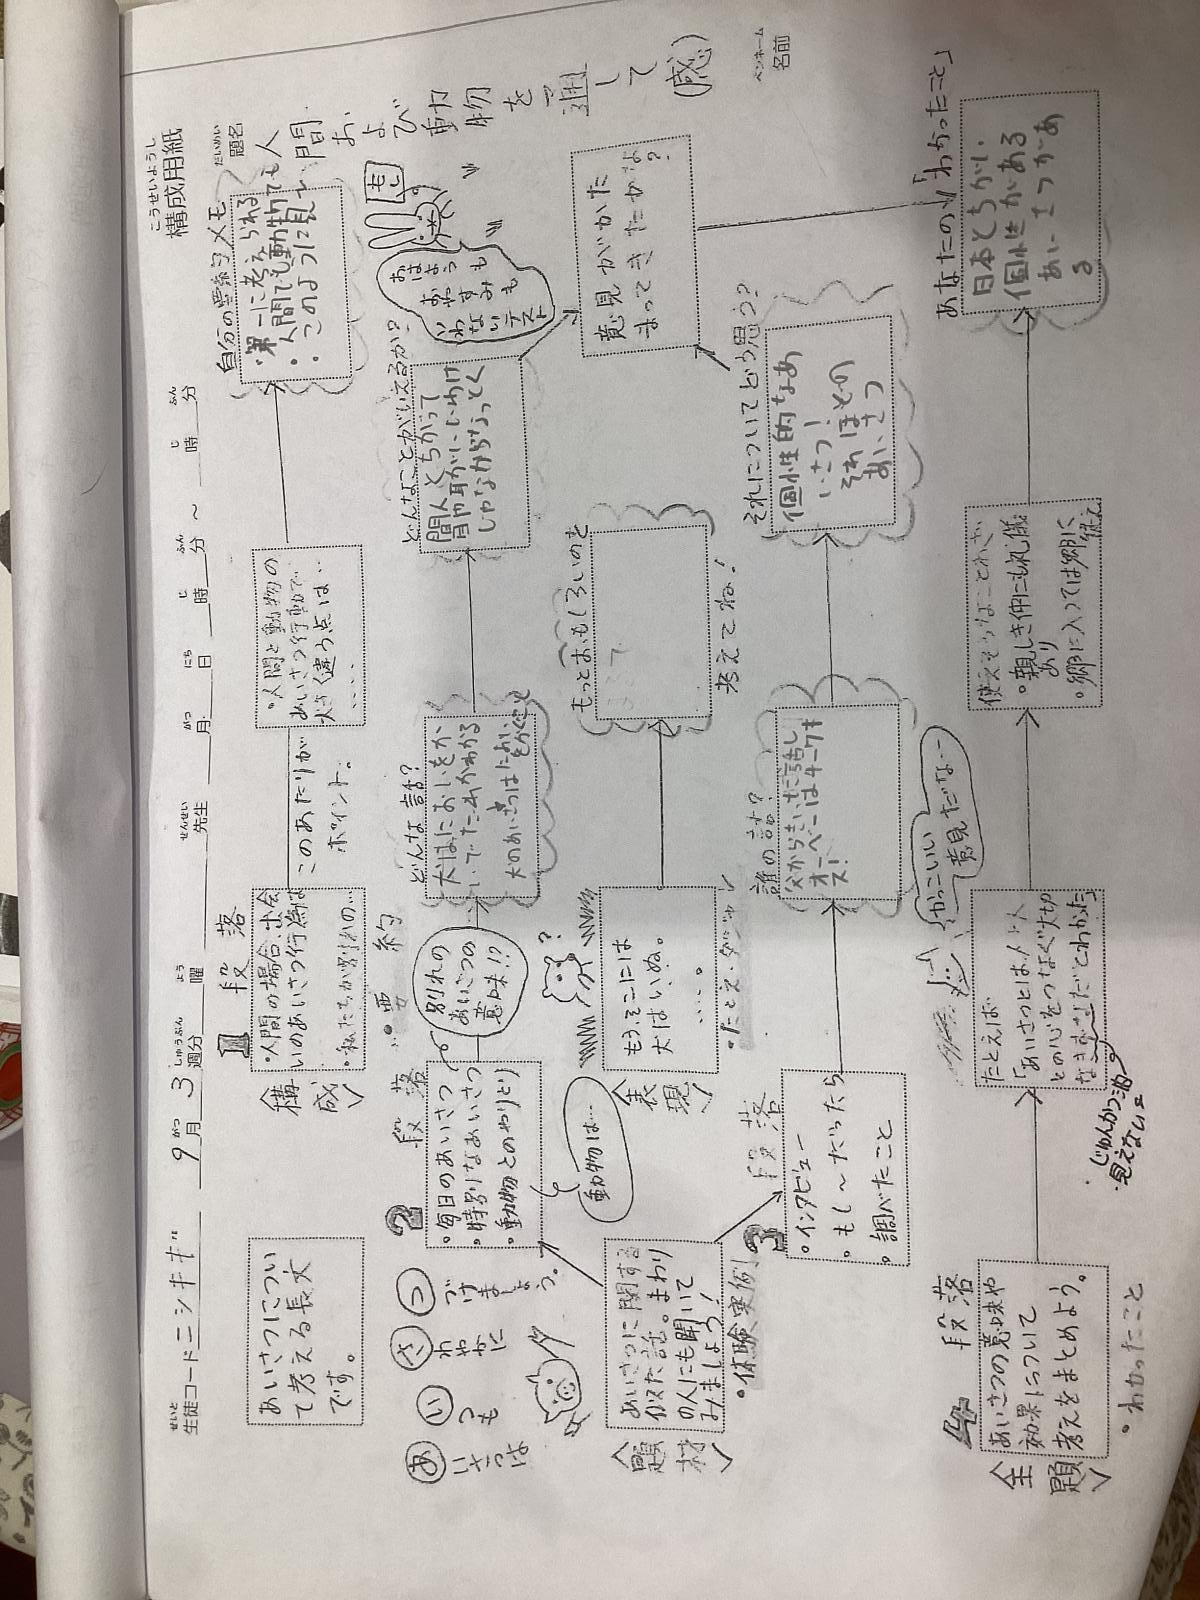 こうせいようし
構成用紙
せいと
生徒コード ニシキギ 9月 3週分 曜 先生 月 日 時 分 ～ 時 分
がつ しゅうぶん よう せんせい がつ にち じ ふん じ ふん
だいめい
題名
人間および動物を通して(感)
ペンネーム
名前
あいさつについ
て考える長文
です。
1 段落
・人間の場合、出会
いのあいさつ行為は
・私たちが別れの…
〈構成〉
・要約
このあたりが
ポイント。
・人間と動物の
あいさつ行動で
大きく違う点は‥
‥‥
自分の要約メモ
・第一に考えられる
・人間でも動物でも
・このように見
もし
おはようも
おやすみも
いわない
テスト
あいさつは
いつも
さわやかに
つづけましょう。
2 段落
・毎日のあいさつ
・特別なあいさつ
・動物とのやりとり
別れの
あいさつの
意味!?
動物は…
どんな話?
犬はにおいをか
いでだれかわかる
犬のあいさつはにおいをかぐこと
どんなことがいえるか?
間人とちがって
しゃなからなっとく
意見がかた
まってきたかな
?
〈題材〉
あいさつに関する
似た話。まわり
の人にも聞いて
みましょう!
・体験実例
〈表現〉
もう、そこには
犬はいぬ。
‥‥。
・たとえ・ダジャレ
?
もっとおもしろいのを
考えてね!
3 段落
・インタビュー
・もし～だったら
・調べたこと
誰の話?
父からきいた話し
オーベーはチークキ
ス!
それについてどう思う?
個性的なあ
いさつ!
それはその
あいさつ
4 段落
〈主題〉
あいさつの意味や
効果について
考えをまとめよう。
・わかったこと
たとえば
「あいさつとは、人と人
との心をつなぐ大切
なきずなだとわかった」
じゅんかつ油。
・見えない
かっこいい
意見だな…
使えそうなことわざ
・親しき仲にも礼儀
あり
・郷に入っては郷に
従え
あなたの「わかったこと」
日本とちがい
個性がある
あいさつがあ
る